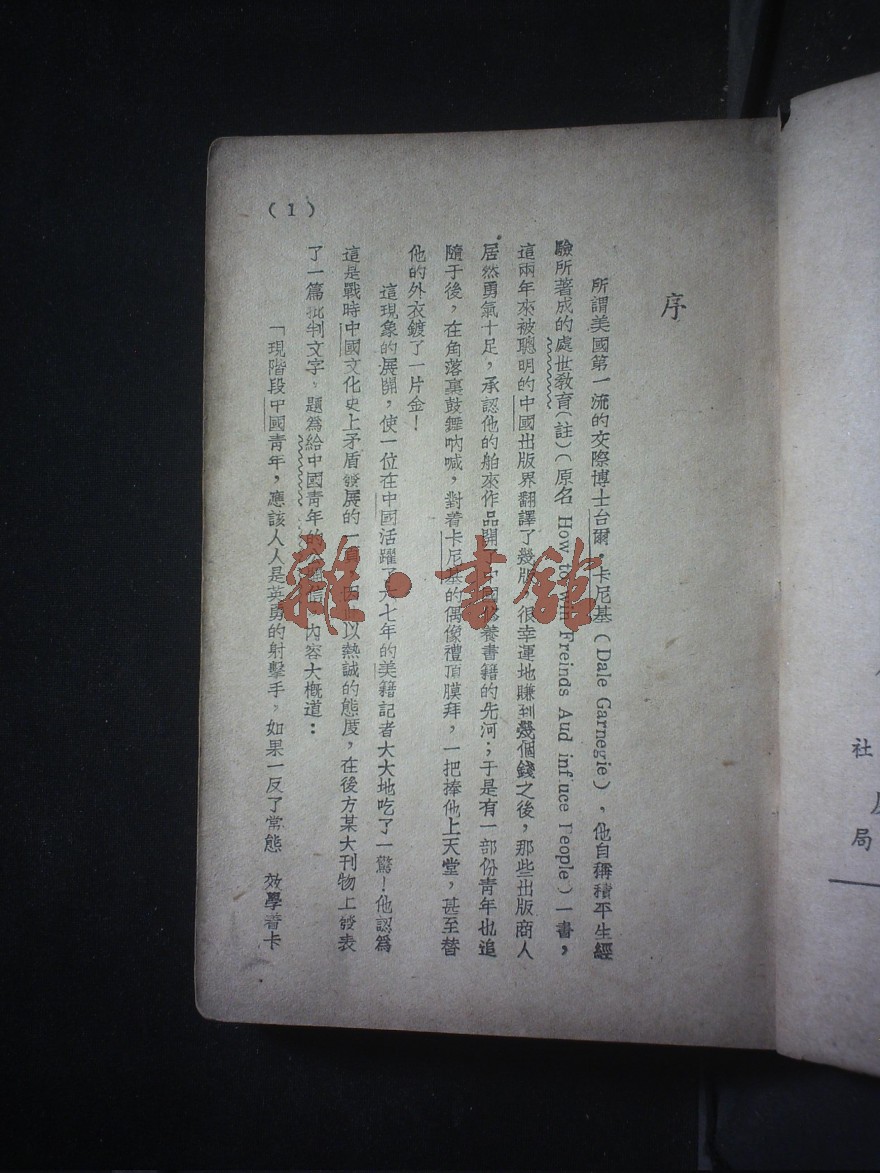 序
所謂美國第一流的交際博士台爾·卡尼基（Dale Garnegie），他自稱積平生經
驗所著成的處世教育（註）（原名 How to win Freinds Aud inf uce People）一書，
這兩年來被聰明的中國出版界翻譯了幾版，很幸運地賺到幾個錢之後，那些出版商人
居然勇氣十足，承認他的舶來作品開了中國修養書籍的先河；于是有一部份青年也追
隨于後，在角落裏鼓舞吶喊，對着卡尼基的偶像禮頂膜拜，一把捧他上天堂，甚至替
他的外衣鍍了一片金！
這現象的展開，使一位在中國活躍了六七年的美籍記者大大地吃了一驚！他認爲
這是戰時中國文化史上矛盾發展的一頁，因此以熱誠的態度，在後方某大刊物上發表
了一篇批判文字，題爲給中國青年的公開信，內容大概道：
「現階段中國青年，應該人人是英勇的射擊手，如果一反了常態 效學着卡
（1）
社
局
雜·書館